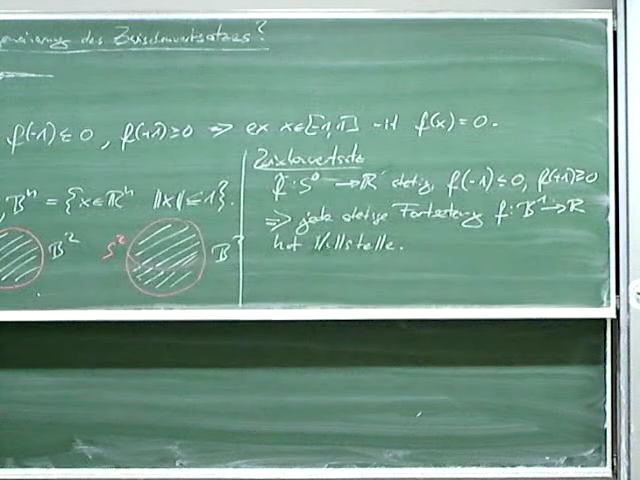 des Zwischenwertsatzes?
f(-1) ≤ 0, f(+1) ≥ 0 ⇒ ex x∈[-1,1] mit f(x) = 0.
, B^n = {x∈R^n ||x|| ≤ 1}.
B^2
S^2
B^3
Zwischenwertsatz
f: S^0 → R stetig, f(-1) ≤ 0, f(+1) ≥ 0
⇒ jede stetige Fortsetzung f: B^1 → R
hat Nullstelle.